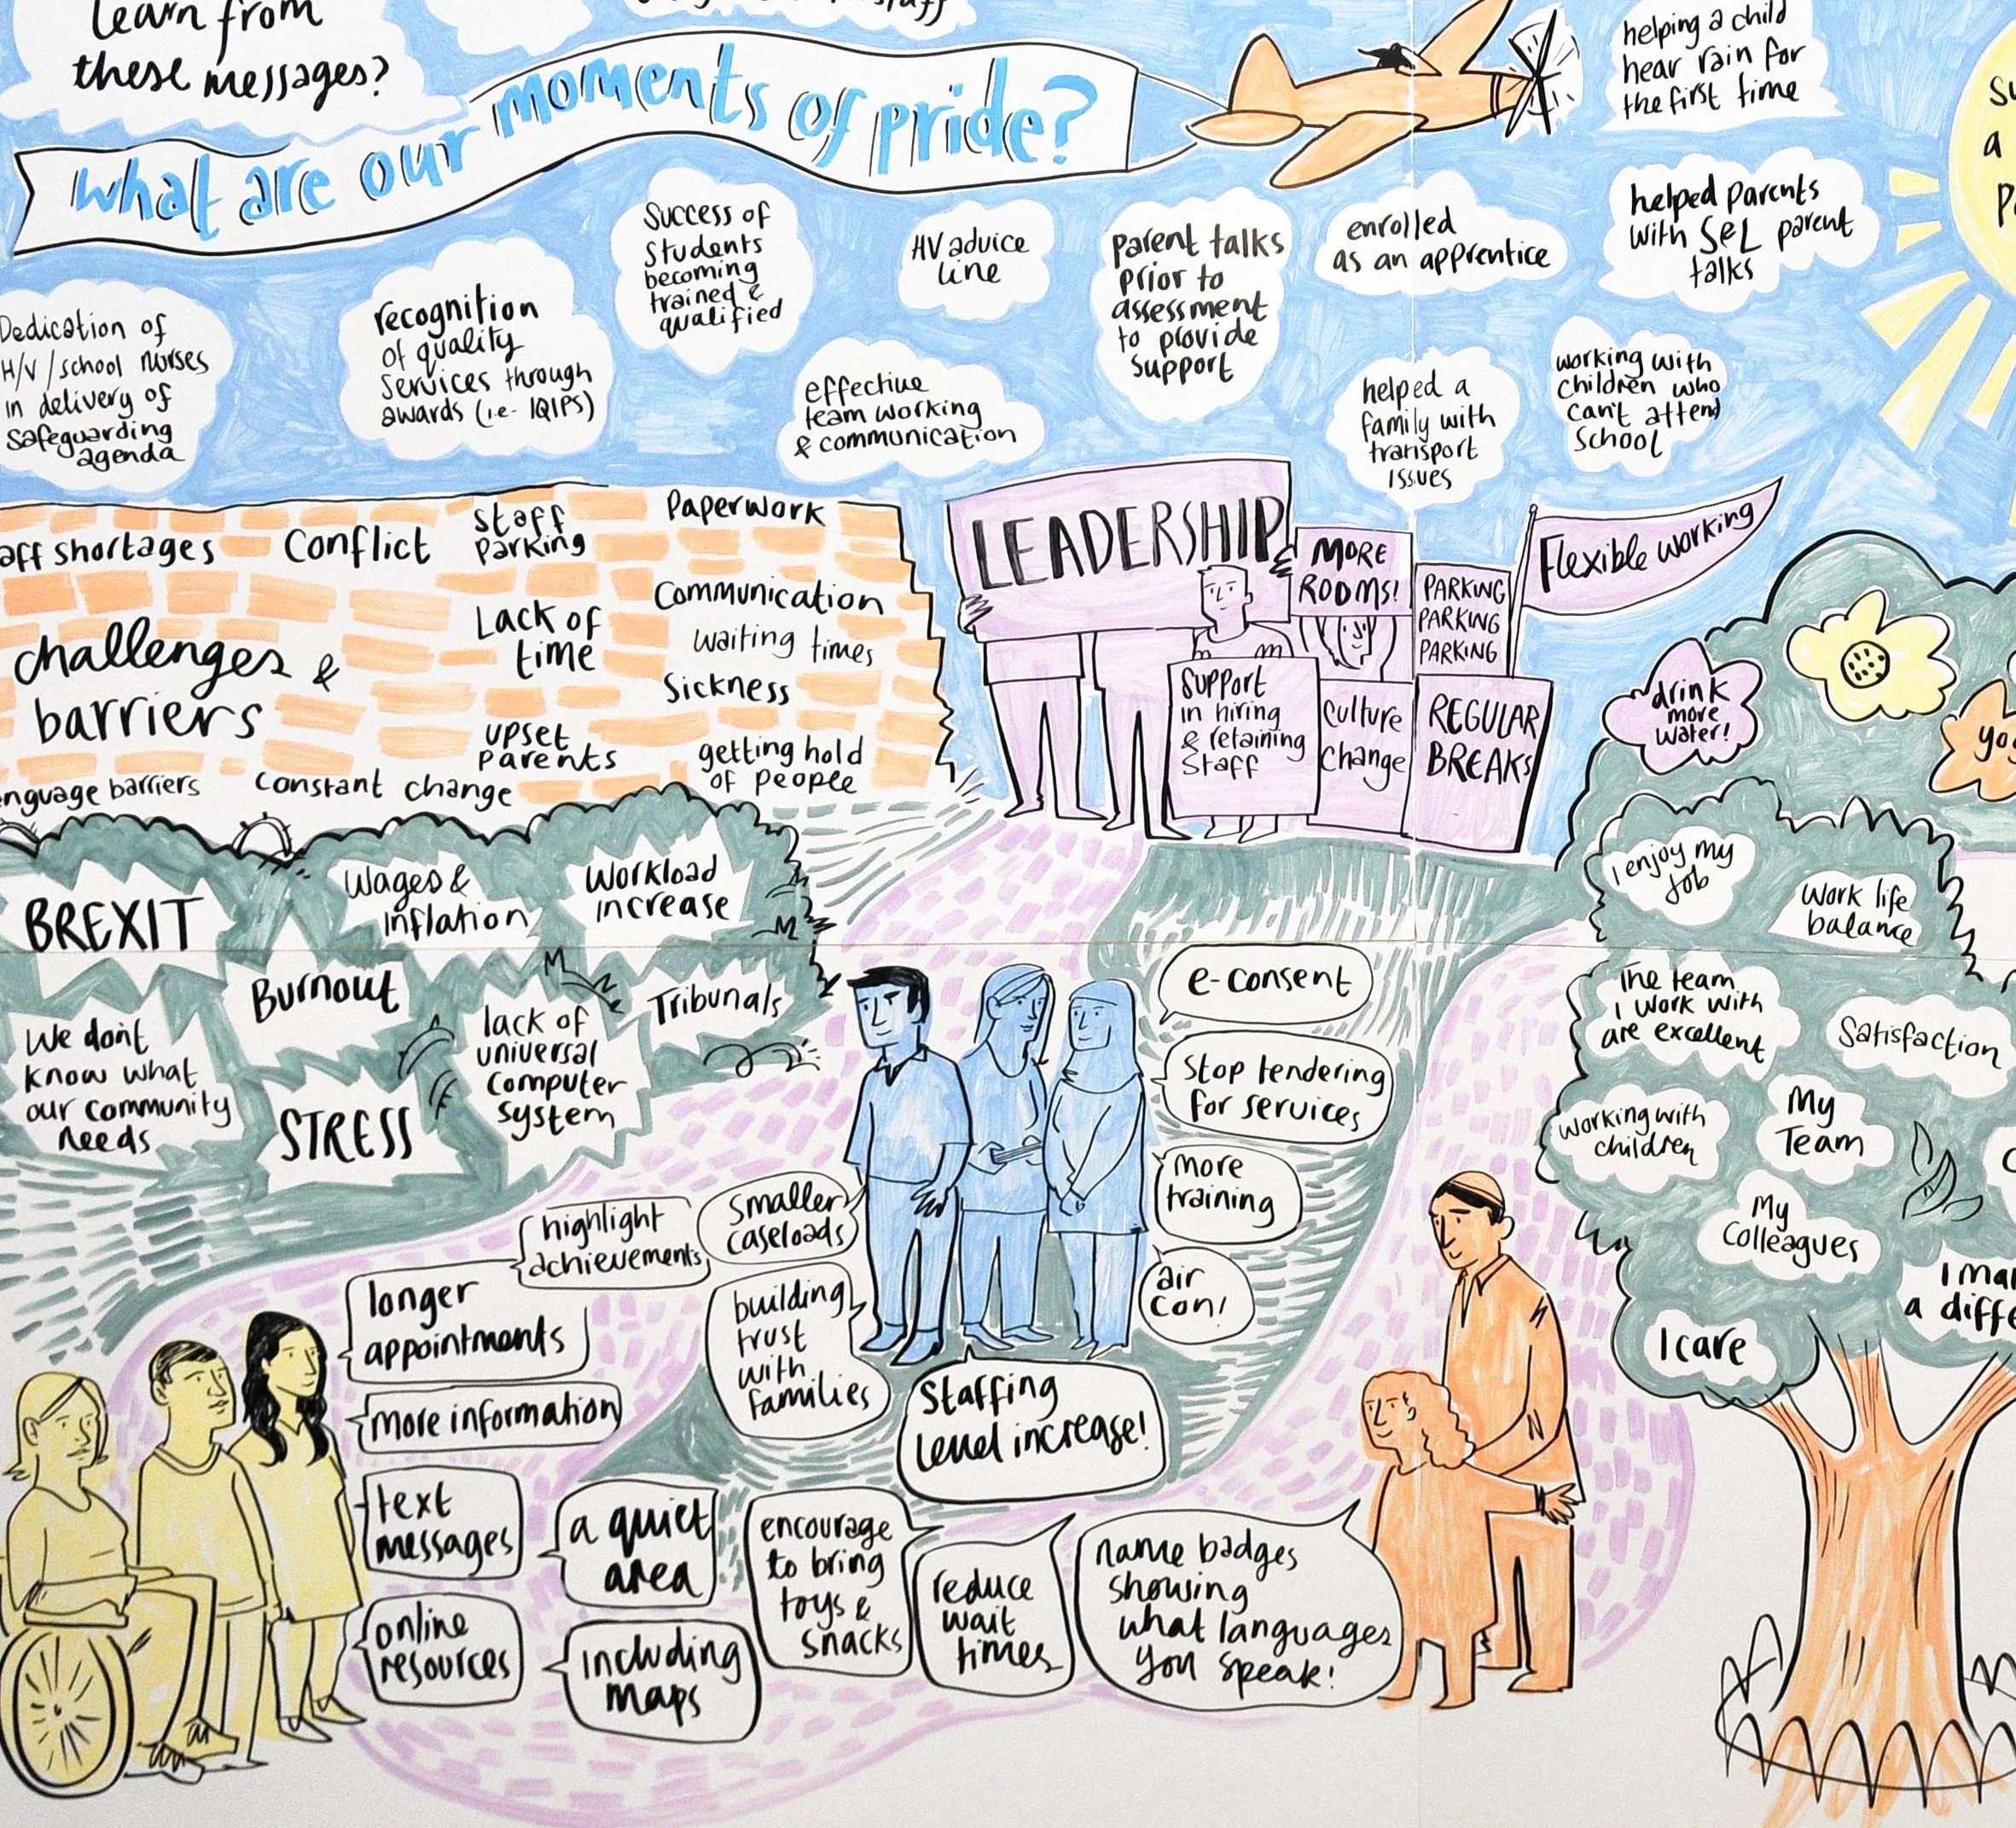 learn from
these messages?
what are our moments of pride?
helping a child
hear rain for
the first time
Dedication of
H/V / school nurses
in delivery of
safeguarding
agenda
recognition
of quality
services through
awards (i.e- IQIPS)
Success of
students
becoming
trained &
qualified
HV advice
line
effective
team working
& communication
parent talks
prior to
assessment
to provide
support
enrolled
as an apprentice
helped parents
with S&L parent
talks
helped a
family with
transport
issues
working with
children who
can't attend
school
a
aff shortages
Conflict
Staff
Parking
Paperwork
Communication
Lack of
time
waiting times
Sickness
challenges &
barriers
upset
Parents
getting hold
of people
nguage barriers
Constant change
LEADERSHIP
MORE
ROOMS!
PARKING
PARKING
PARKING
Flexible working
Support
in hiring
& retaining
staff
Culture
Change
REGULAR
BREAKS
drink
more
water!
BREXIT
Wages &
inflation
Workload
increase
Burnout
Tribunals
We don't
know what
our community
needs
STRESS
lack of
universal
computer
system
I enjoy my
job
Work life
balance
The team
I work with
are excellent
Satisfaction
working with
children
My
Team
My
Colleagues
I care
a diffe
e-consent
Stop tendering
for services
more
training
air
con!
highlight
achievements
Smaller
caseloads
building
trust
with
families
Staffing
level increase!
longer
appointments
more information
text
messages
online
resources
a quiet
area
including
maps
encourage
to bring
toys &
snacks
reduce
wait
times
name badges
showing
what languages
you speak!